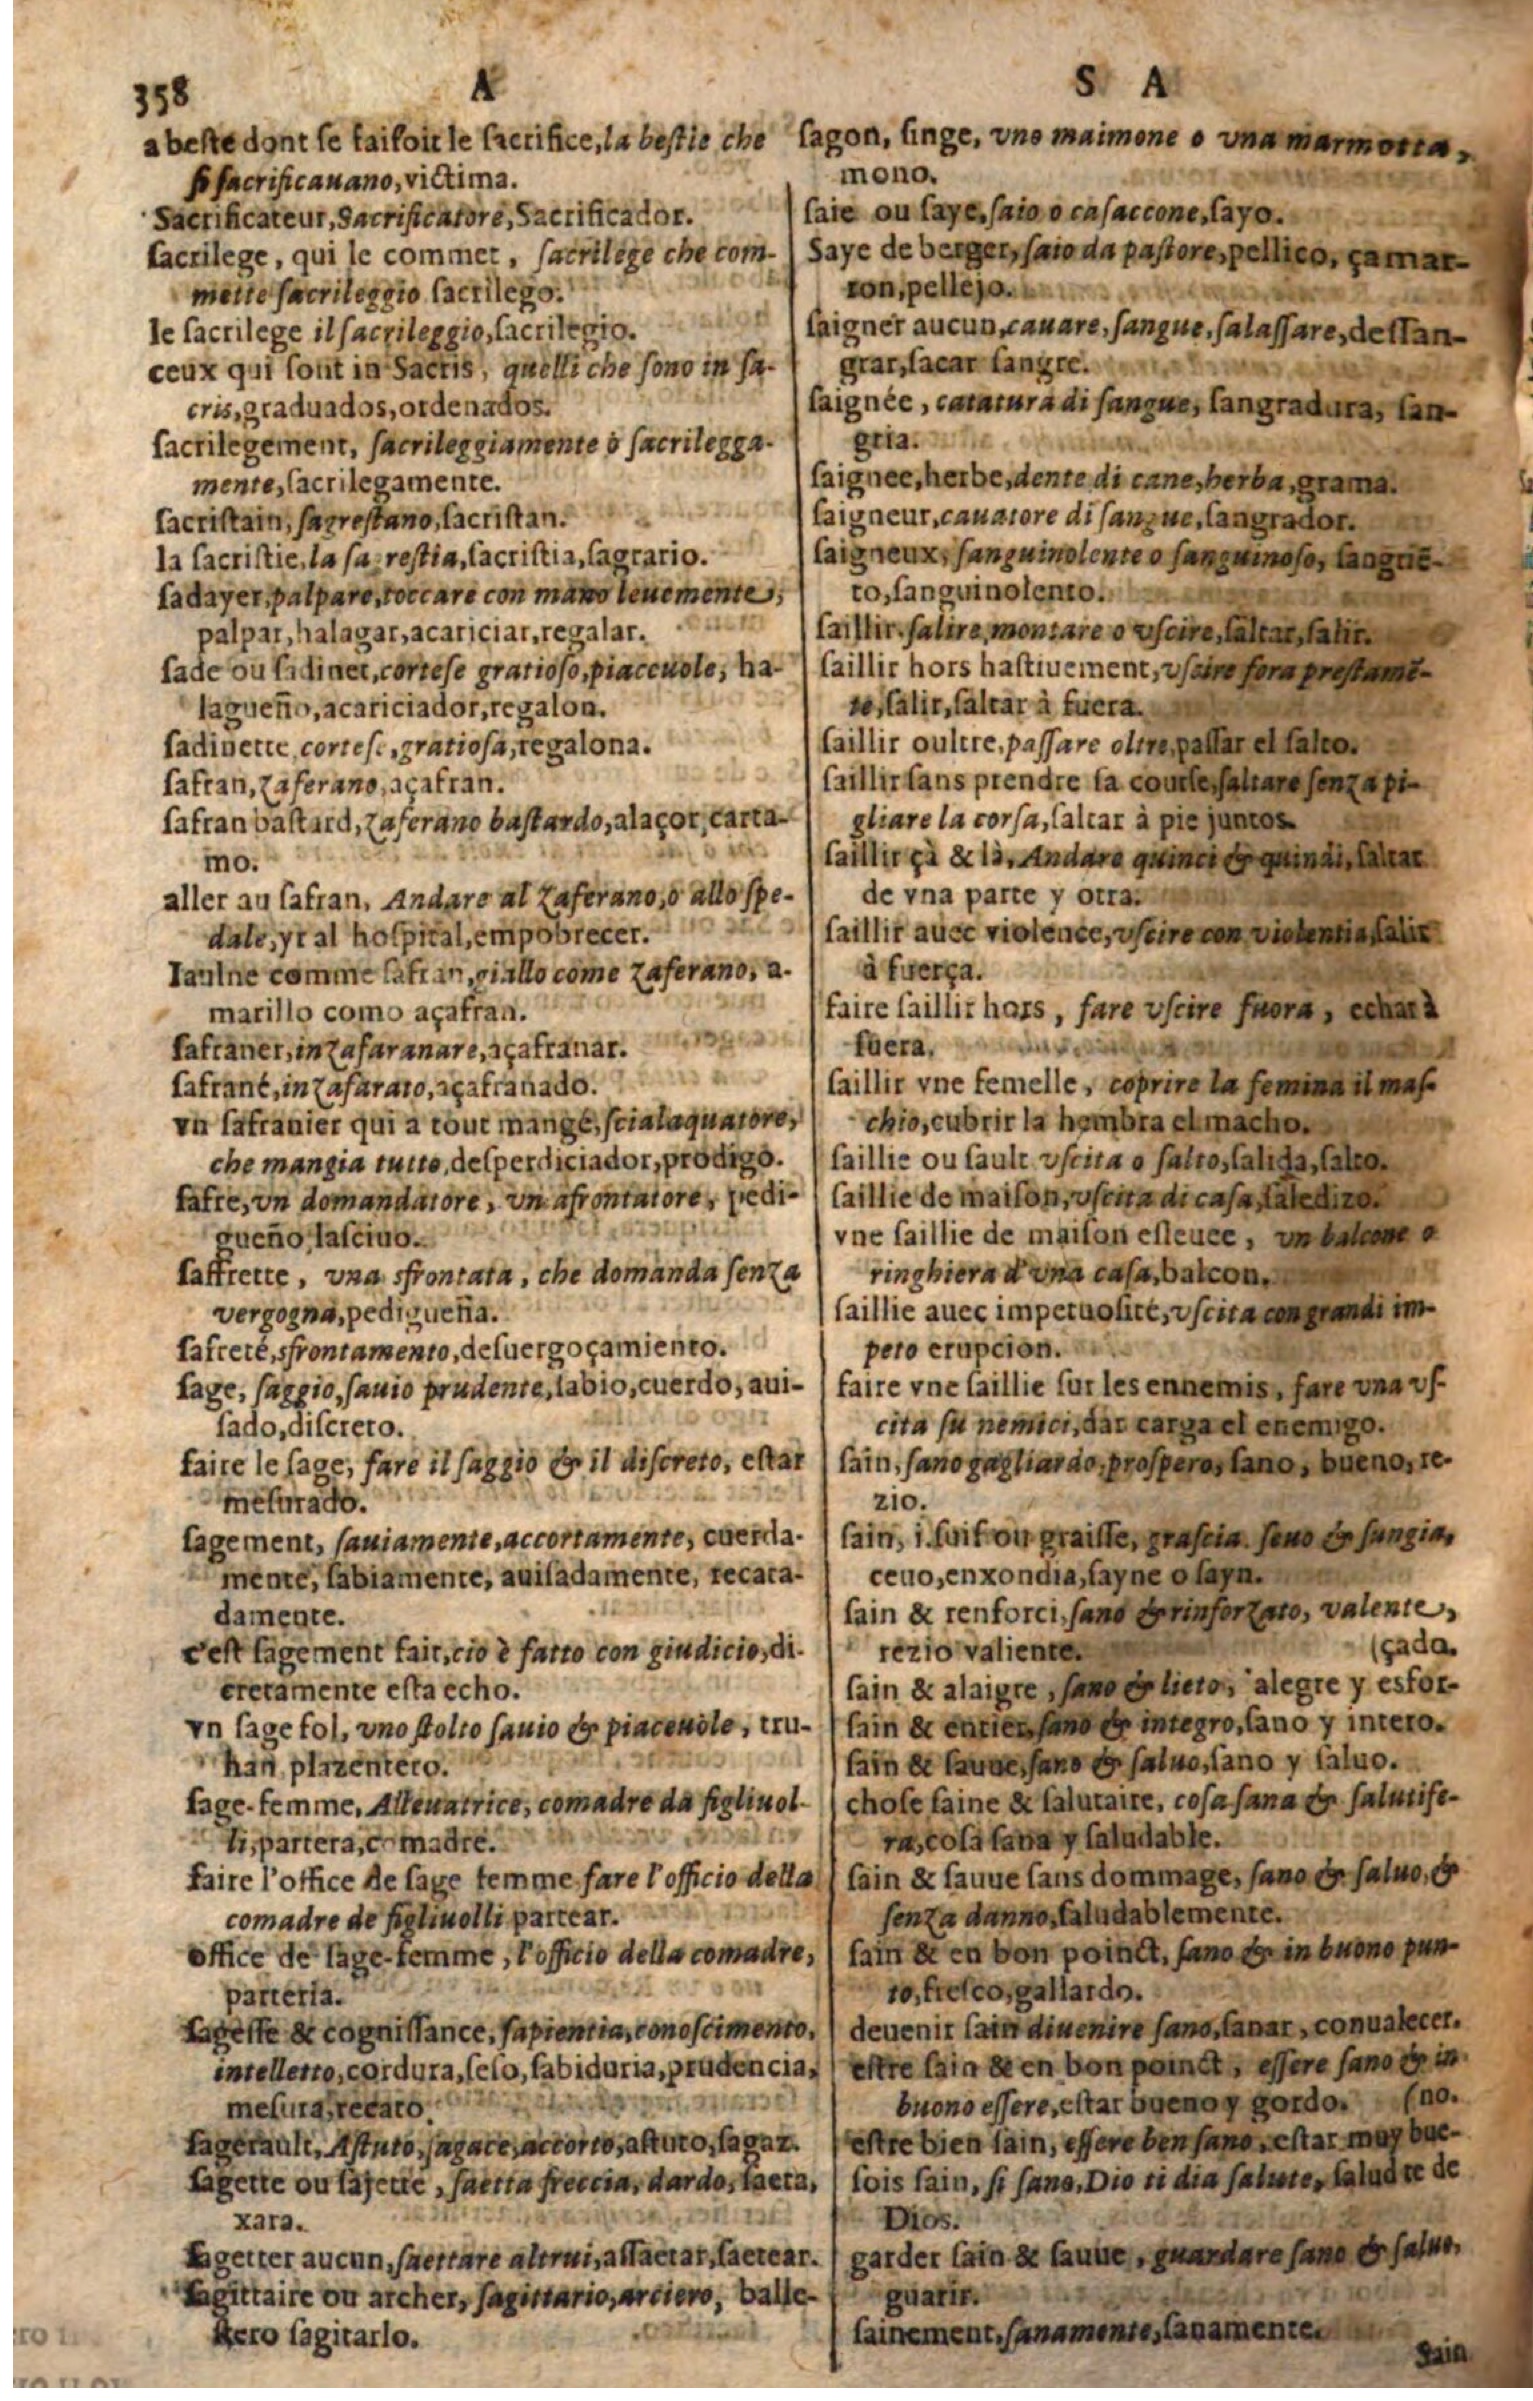 358 A
S A
a beste dont se faisoit le sacrifice, la bestie che
si sacrificauano, victima.
Sacrificateur, Sacrificatore, Sacrificador.
sacrilege, qui le commet, sacrilege che com-
mette sacrileggio sacrilego.
le sacrilege il sacrileggio, sacrilegio.
ceux qui sont in Sacris, quelli che sono in sa-
cris, graduados, ordenados.
sacrilegement, sacrileggiamente ò sacrilegga-
mente, sacrilegamente.
sacristain, sagrestano, sacristan.
la sacristie, la sagrestia, sacristia, sagrario.
sadayer, palpare, toccare con mano leuemente,
palpar, halagar, acariciar, regalar.
sade ou sadinet, cortese gratioso, piaceuole, ha-
lagueño, acariciador, regalon.
sadinette cortese, gratiosa, regalona.
safran, zaferano, açafran.
safran bastard, zaferano bastardo, alaçor, carta-
mo.
aller au safran, Andare al zaferano, o allo spe-
dale, yr al hospital, empobrecer.
Iaulne comme safran, giallo come zaferano, a-
marillo como açafran.
safraner, inzafaranare, açafranar.
safrané, inzafarato, açafranado.
vn safranier qui a tout mangé, scialaquatore,
che mangia tutto, desperdiciador, prodigo.
safre, vn domandatore, vn afrontatore, pedi-
gueño, lasciuo.
saffrette, vna sfrontata, che domanda senza
vergogna, pedigueña.
safreté, sfrontamento, desuergoçamiento.
sage, saggio, sauio prudente, sabio, cuerdo, aui-
sado, discreto.
faire le sage, fare il saggio & il discreto, estar
mesurado.
sagement, sauiamente, accortamente, cuerda-
mente, sabiamente, auisadamente, recata-
damente.
c'est sagement fait, cio è fatto con giudicio, di-
cretamente esta echo.
vn sage fol, vno stolto sauio & piaceuole, tru-
han plazentero.
sage-femme, Alleuatrice, comadre da figliuol-
li, partera, comadre.
faire l'office de sage femme fare l'officio della
comadre de figliuolli partear.
office de sage-femme, l'officio della comadre,
parteria.
sagesse & cognissance, sapientia, conoscimento,
intelletto, cordura, seso, sabiduria, prudencia,
mesura, recato.
sagerault, Astuto, sagace, accorto, astuto, sagaz.
sagette ou sajette, saetta freccia, dardo, saeta,
xara.
sagetter aucun, saettare altrui, assaetar, saetear.
sagittaire ou archer, sagittario, arciero, balle-
stero sagitarlo.
sagon, singe, vno maimone o vna marmotta,
mono.
saie ou saye, saio o casaccone, sayo.
Saye de berger, saio da pastore, pellico, çamar-
ron, pellejo.
saigner aucun, cauare, sangue, salassare, dessan-
grar, sacar sangre.
saignée, catatura di sangue, sangradura, san-
gria.
saignee, herbe, dente di cane, herba, grama.
saigneur, cauatore di sangue, sangrador.
saigneux, sanguinolente o sanguinoso, sangriē-
to, sanguinolento.
saillir, salire, montare o vscire, saltar, salir.
saillir hors hastiuement, vscire fora prestamē-
te, salir, saltar à fuera.
saillir oultre, passare oltre, passar el salto.
saillir sans prendre sa course, saltare senza pi-
gliare la corsa, saltar à pie juntos.
saillir çà & là, Andare quinci & quindi, saltar
de vna parte y otra.
saillir auec violence, vscire con violentia, salir
à fuerça.
faire saillir hors, fare vscire fuora, echar à
fuera.
saillir vne femelle, coprire la femina il mas-
chio, cubrir la hembra el macho.
saillie ou sault vscita o salto, salida, salto.
saillie de maison, vscita di casa, saledizo.
vne saillie de maison esleuee, vn balcone o
ringhiera d'vna casa, balcon.
saillie auec impetuosité, vscita con grandi im-
peto erupcion.
faire vne saillie sur les ennemis, fare vna vs-
cita su nemici, dar carga el enemigo.
sain, sano gagliardo, prospero, sano, bueno, re-
zio.
sain, i. suif ou graisse, grascia seuo & sungia,
ceuo, enxondia, sayne o sayn.
sain & renforci, sano & rinforzato, valente,
rezio valiente. (çado.
sain & alaigre, sano & lieto, alegre y esfor-
sain & entier, sano & integro, sano y intero.
sain & sauue, sano & saluo, sano y saluo.
chose saine & salutaire, cosa sana & salutife-
ra, cosa sana y saludable.
sain & sauue sans dommage, sano & saluo, &
senza danno, saludablemente.
sain & en bon poinct, sano & in buono pun-
to, fresco, gallardo.
deuenir sain diuenire sano, sanar, conualecer.
estre sain & en bon poinct, essere sano & in
buono essere, estar bueno y gordo. (no.
estre bien sain, essere ben sano, estar muy bue-
sois sain, si sano, Dio ti dia salute, salud te de
Dios.
garder sain & sauue, guardare sano & saluo,
guarir.
sainement, sanamente, sanamente.
Sain